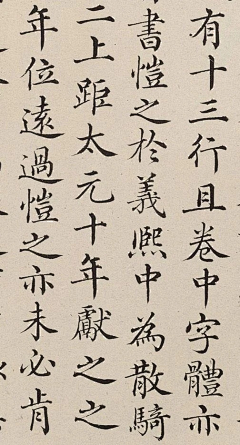 有十三行且卷中字體亦
書愷之於義熙中為散騎
二上距太元十年獻之之
年位遠過愷之亦未必肯